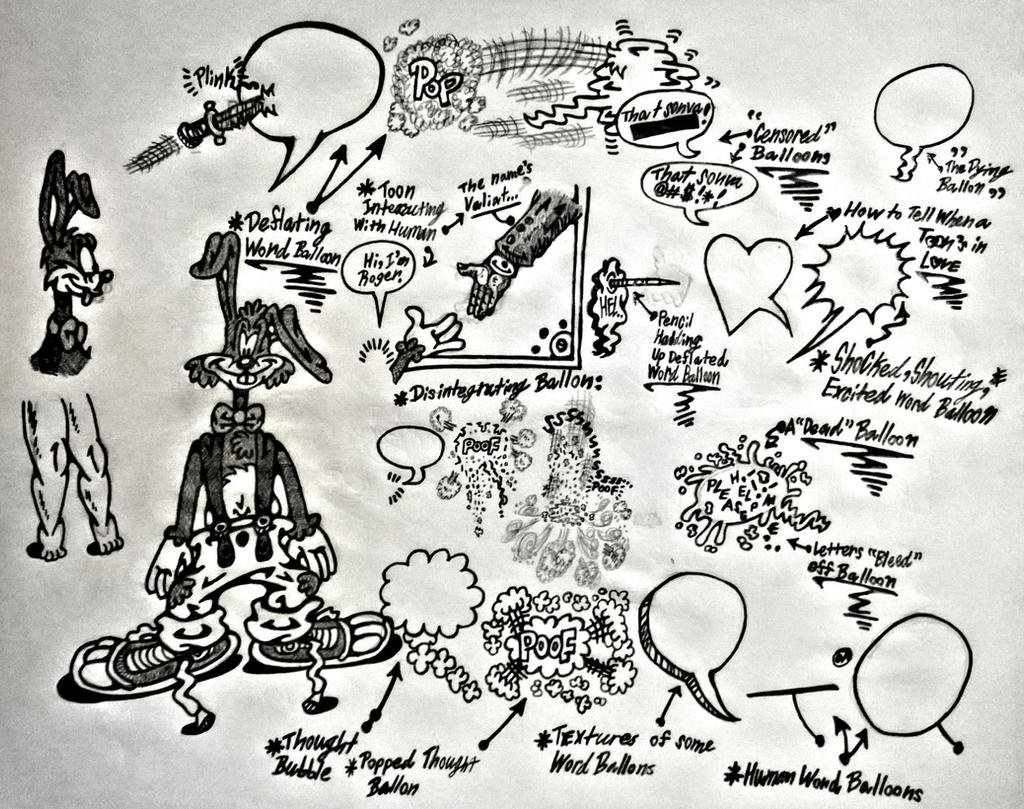 "Plink"
POP
That sonva!
"Censored"
Balloons
That sonva
@##$!*!
"The Dying
Ballon"
*Deflating
Word Balloon
*Toon
Interacting
With Human
The name's
Valiat...
Hi, I'm
Roger.
HEL..
Pencil
Holding
Up Deflated
Word Balloon
How to Tell When a
Toon's in
Love
*Shocked, Shouting,*
Excited Word Balloon
*Disintegrating Ballon:
POOF
POOF
A "Dead" Balloon
PLEASE
Letters "Bleed"
off Balloon
POOF
*Thought
Bubble
*Popped Thought
Ballon
*Textures of some
Word Ballons
*Human Word Balloons